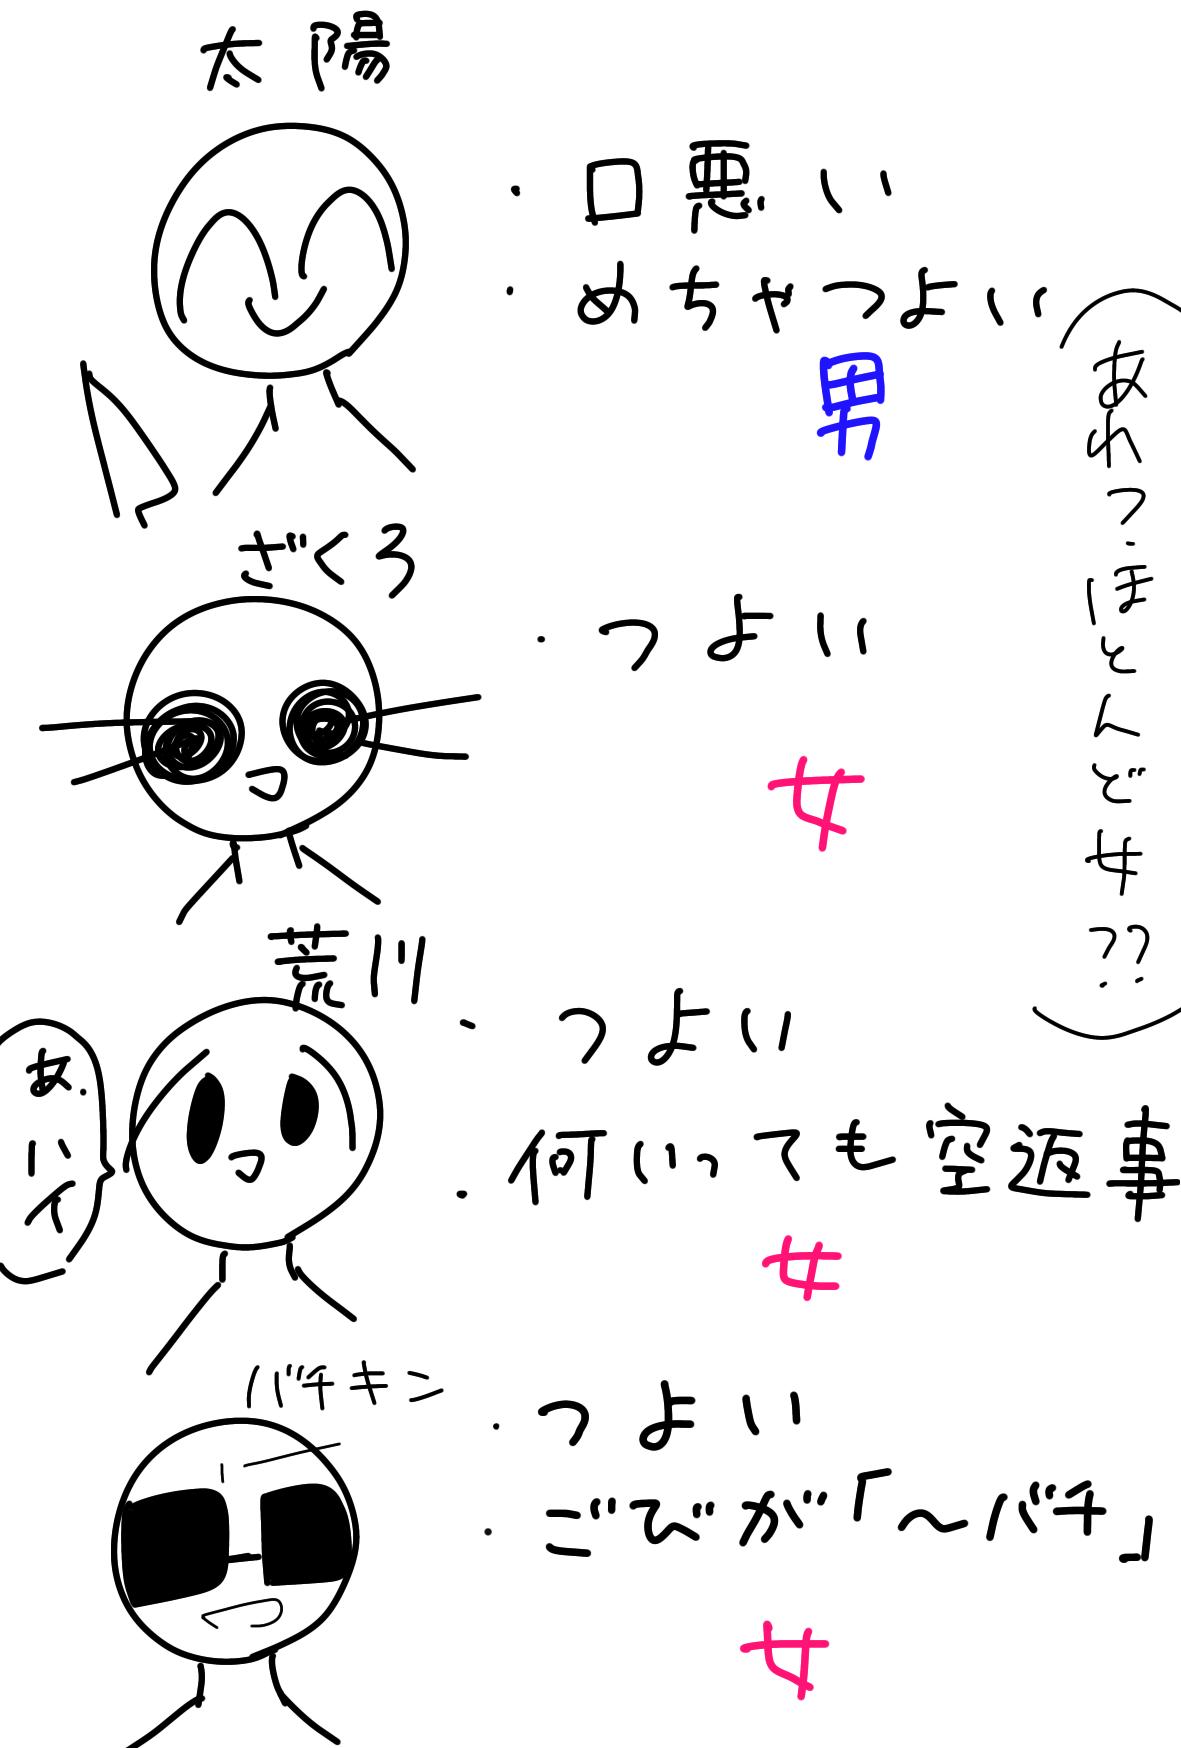 太陽
・口悪い
・めちゃつよい
男
あれっ・ほとんど女??
ざくろ
・つよい
女
荒川
・つよい
・何いっても空返事
あ.ハイ
女
バチキン
・つよい
・ごびが「〜バチ」
女